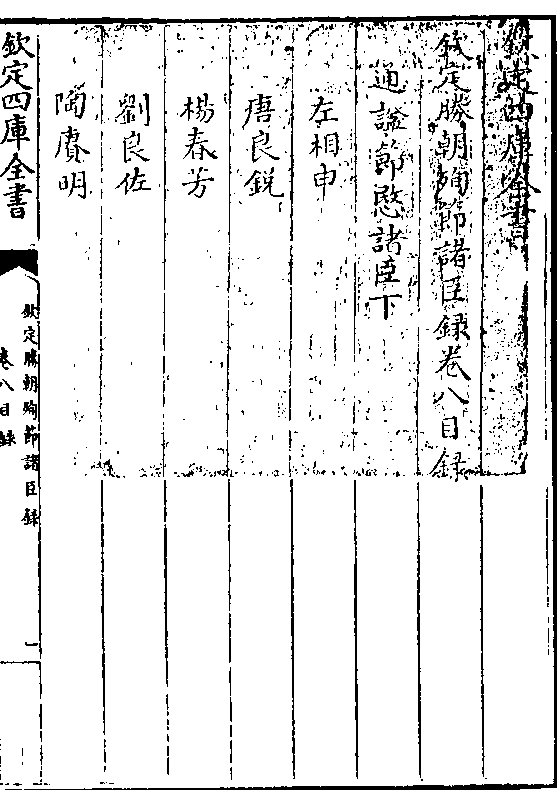 欽定四庫全書
欽定勝朝殉節諸臣錄卷八目錄
通諡節愍諸臣下
左相申
唐良銳
楊春芳
劉良佐
陶賡明
欽定四庫全書
欽定勝朝殉節諸臣錄
卷八目錄
一